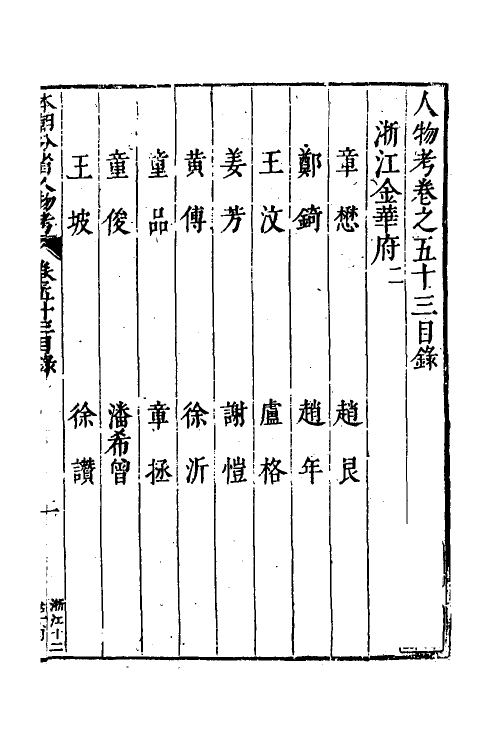 人物考卷之五十三目錄
浙江金華府二
章懋　趙艮
鄭錡　趙年
王汶　盧格
姜芳　謝愷
黃傅　徐沂
童品　章拯
童俊　潘希曾
王坡　徐讚
本朝分省人物考　卷五十三目錄　一
浙江十二